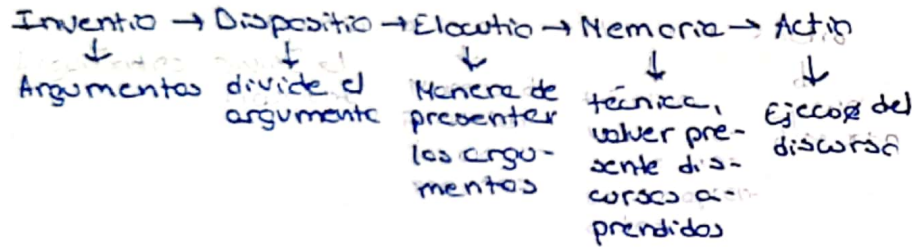 Inventio → Dispositio → Elocutio → Memoria → Actio
↓ ↓ ↓ ↓ ↓
Argumentos
divide el
argumento
Manera de
presentar
los argu-
mentos
técnica,
volver pre-
sente dis-
cursos a-
prendidos
del
discurso